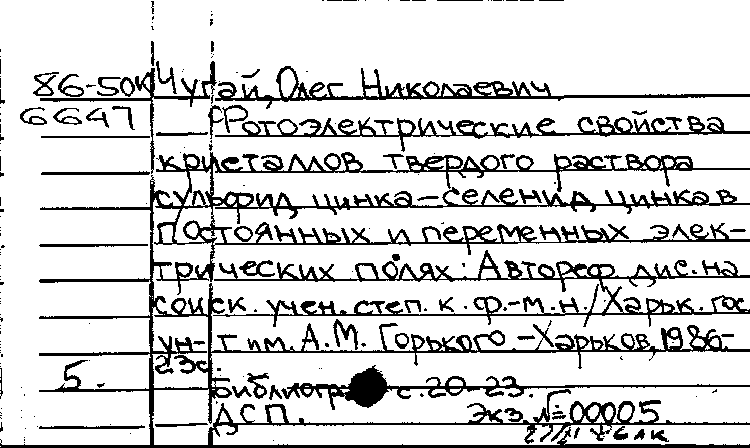 86-50к Чугай, Олег Николаевич
6647 Фотоэлектрические свойства
кристаллов твердого раствора
сульфид цинка-селенид цинка в
постоянных и переменных элек-
трических полях: Автореф дис. на
соиск. учен. степ. к. ф.-м. н./Харьк. гос
ун-т им. А.М. Горького.-Харьков, 1986.-
23с.
5. Библиогр с. 20-23.
ДСП. Экз. №=00005